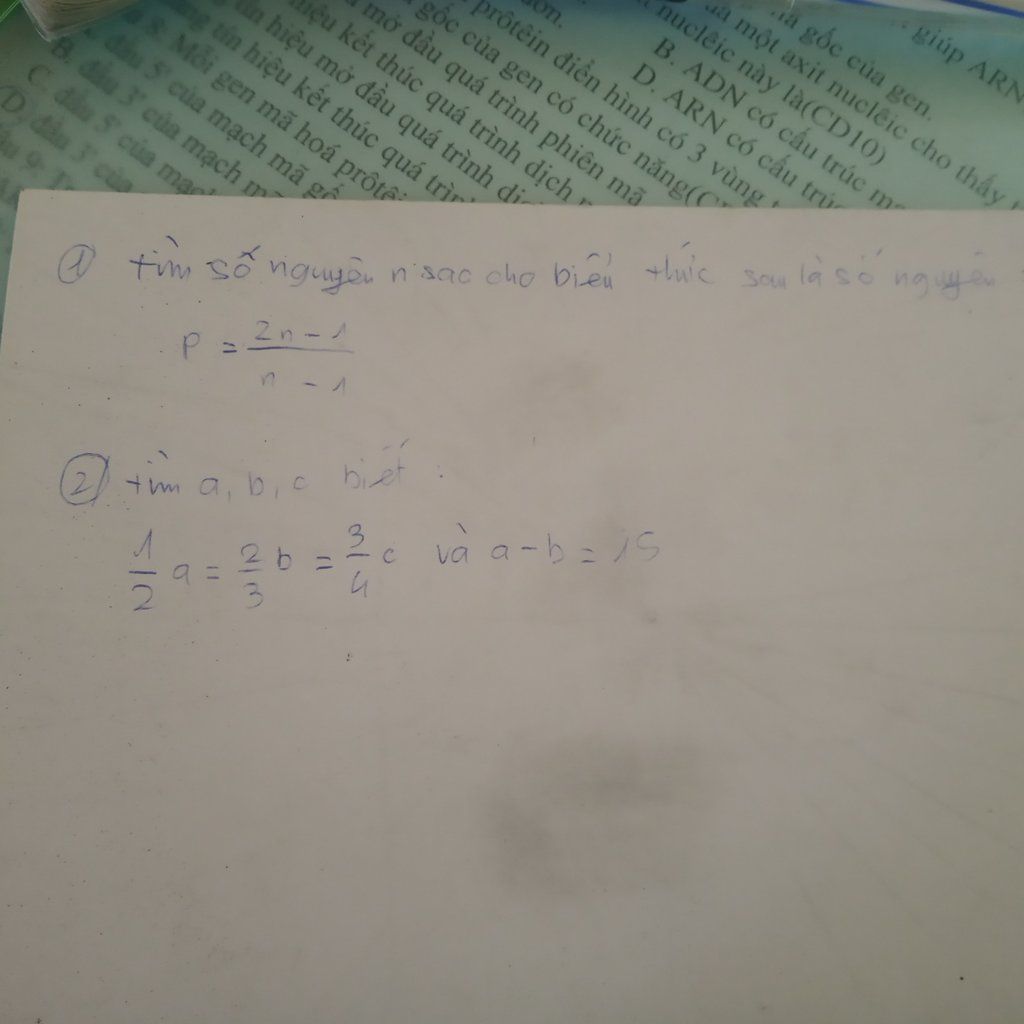 giúp ARN
là gốc của gen.
là một axit nuclêic cho thấy
nuclêic này là(CD10)
B. ADN có cấu trúc
D. ARN có cấu trúc
prôtêin điển hình có 3 vùng
gốc của gen có chức năng
mở đầu quá trình phiên mã
hiệu kết thúc quá trình dịch
tín hiệu mở đầu quá trình
tín hiệu kết thúc quá trình
8. Mỗi gen mã hoá prôtêi
đầu 5' của mạch mã gố
B. đầu 3' của mạch
C. đầu 5' của mạch
D. đầu 3' của
① tìm số nguyên n sao cho biểu thức sau là số nguyên
P = \frac{2n - 1}{n - 1}
② tìm a, b, c biết :
\frac{1}{2} a = \frac{2}{3} b = \frac{3}{4} c và a - b = 15